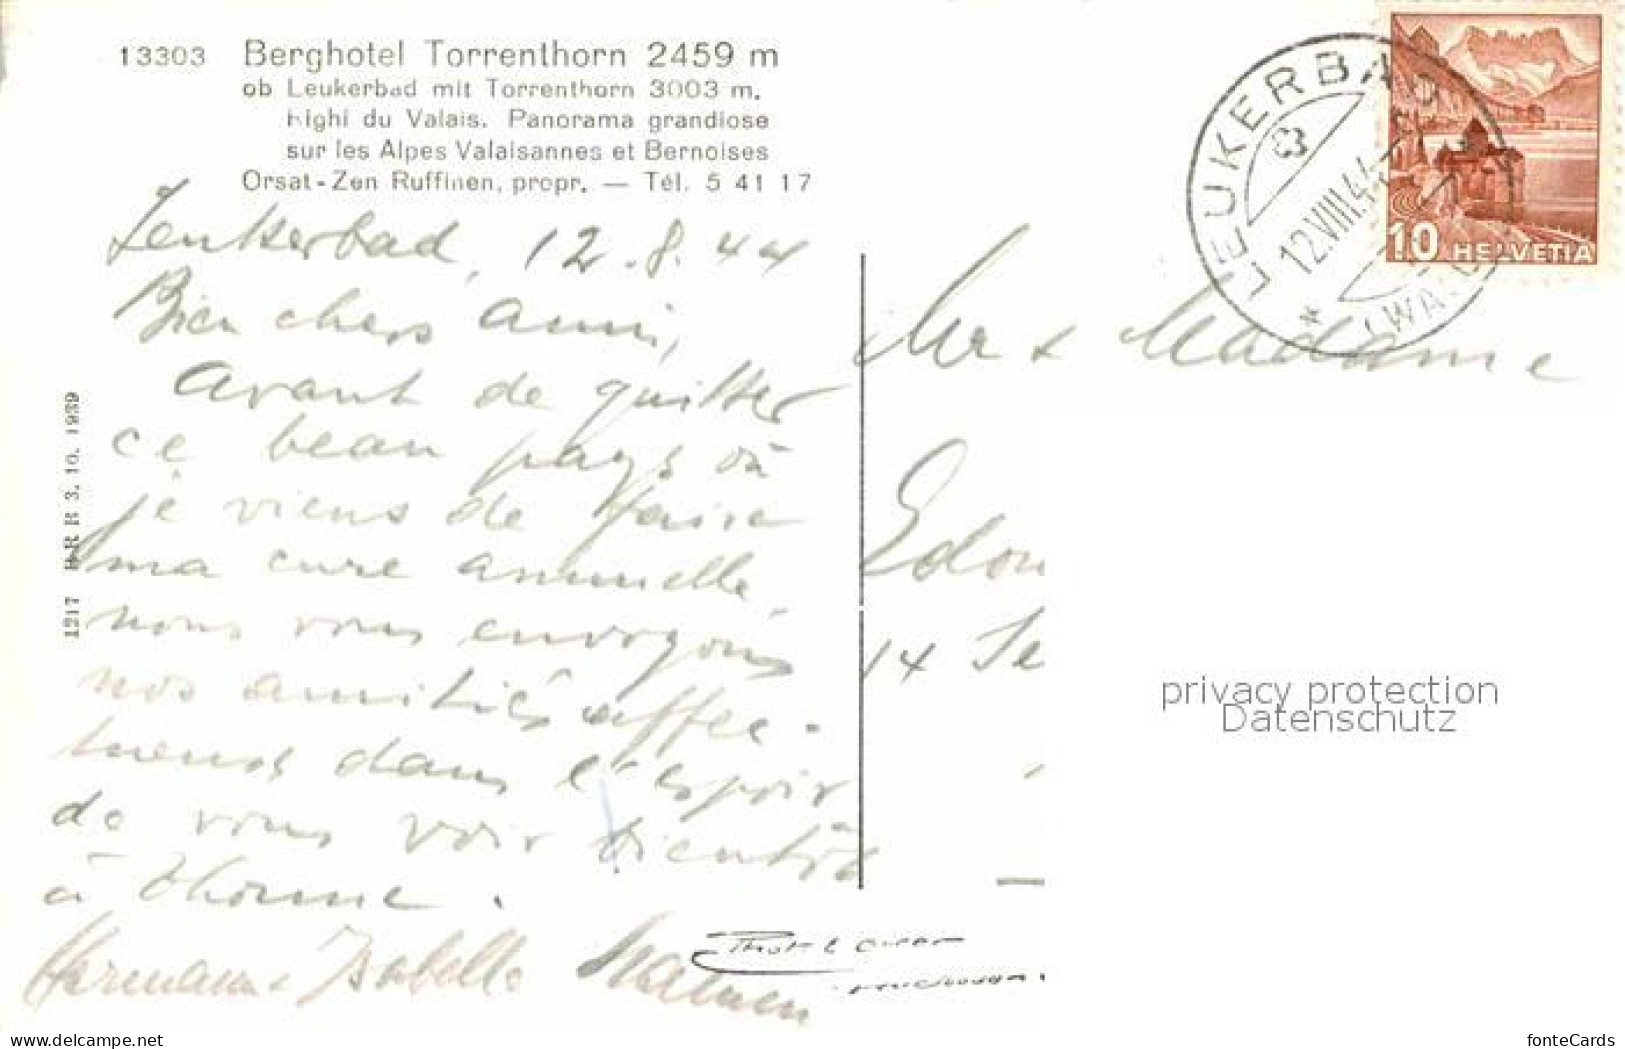 13303 Berghotel Torrenthorn 2459 m
ob Leukerbad mit Torrenthorn 3003 m.
Righi du Valais. Panorama grandiose
sur les Alpes Valaisannes et Bernoises
Orsat-Zen Ruffinen, propr. — Tél. 5 41 17
Leukerbad, 12.8.44
Bien chers amis,
Avant de quitter
ce beau pays où
je viens de faire
ma cure annuelle,
nous vous envoyons
nos amitiés affec-
tueuses dans l'espoir
de vous voir bientôt
à Thonne.
Hermann & Isabelle
1217 B R B 3. 10. 1939
LEUKERBAD
12.VIII.44
10 HELVETIA
Mr & Madame
Edou
14 Se
privacy protection
Datenschutz
www.ansichtskarten-center.de
fonteCards